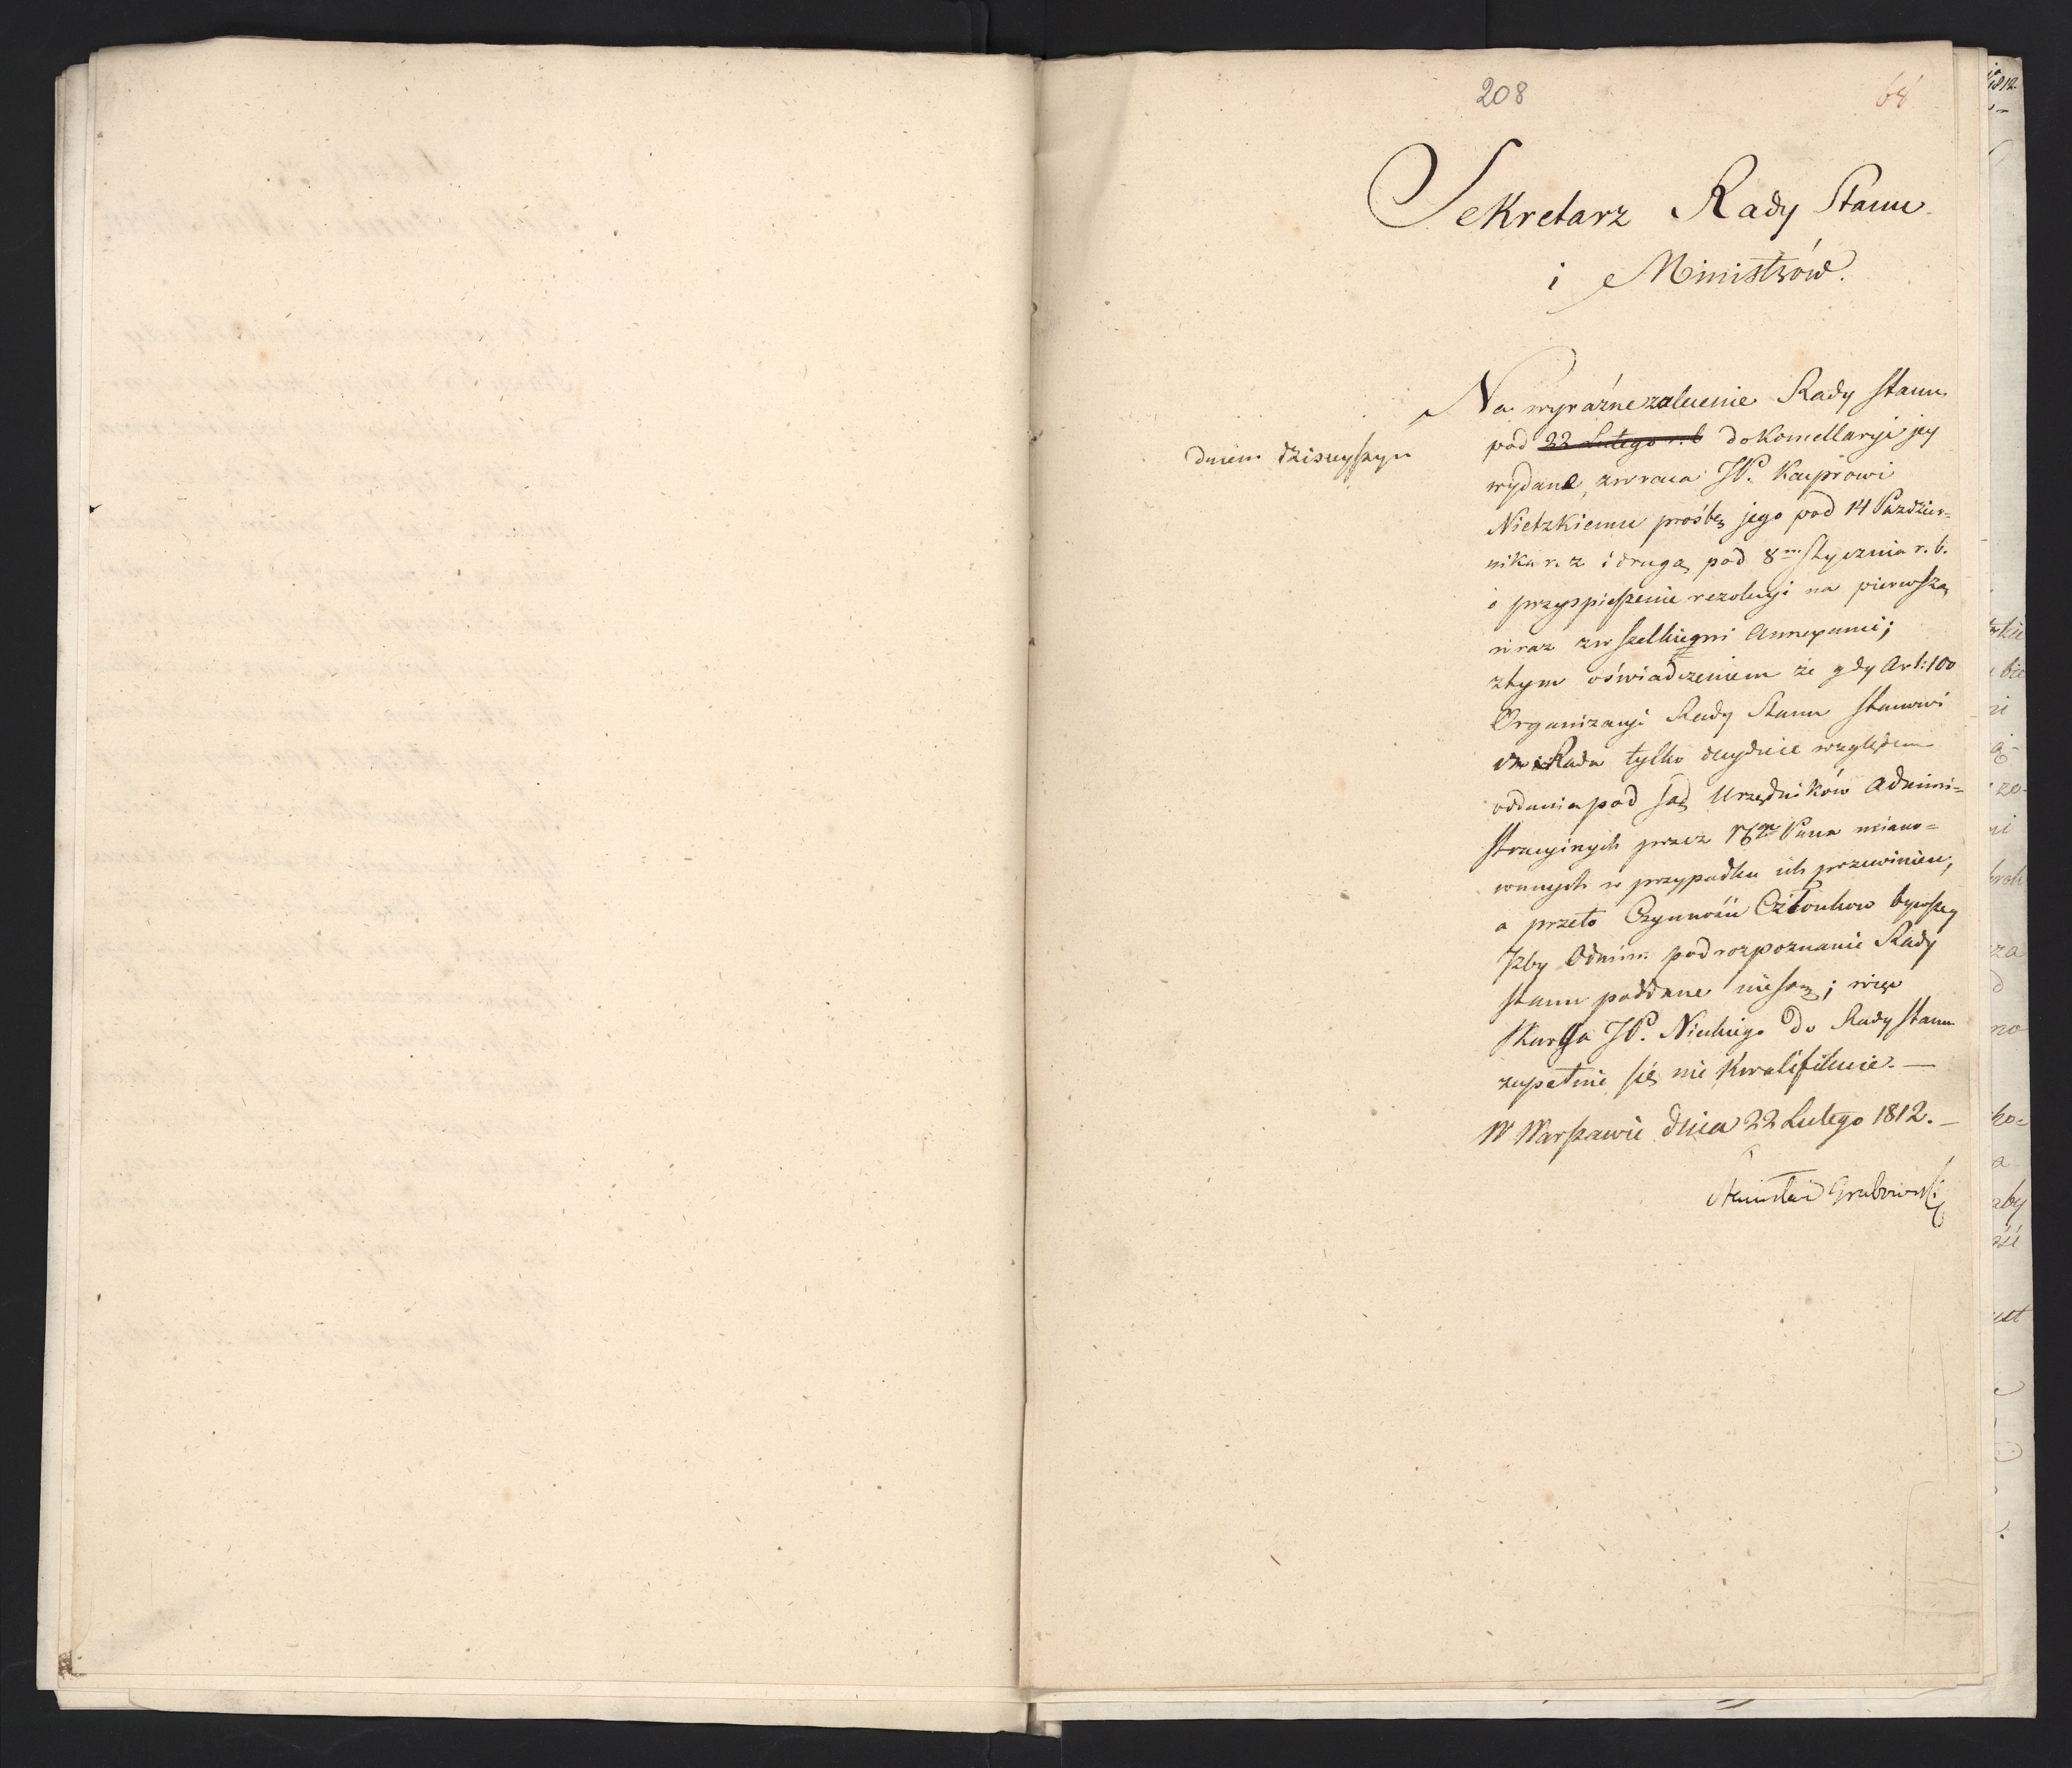 208
68
Sekretarz Rady Stanu
i Ministrów.
Na wyraźne zalecenie Rady Stanu
dniem dzisieyszym
pod 22 Lutego r. b do Kancellaryi jey
wydane, zwraca JP. Kacprowi
Nietzkiemu prośbę jego pod 14 Paździer=
nika r. z i drugą pod 8m Stycznia r. b.
o przyspieszenie rezolucyi na pierwszą,
wraz z wszelkiemi Annexami;
z tym oświadczeniem że gdy Art: 100
Organizacyi Rady Stanu stanowi
że Rada tylko decyduie względem
oddania pod sąd Urzędników Admini=
stracyinych przez Pana miano=
wanych w przypadku ich przewinień,
a przeto Czynności Członków bywszey
Izby Admin: pod rozpoznanie Rady
Stanu poddane nie są; więc
skarga JP. Nieckiego do Rady Stanu
zupełnie się nie kwalifikuie. —
W Warszawie dnia 22 Lutego 1812. —
Stanisław Grabowski